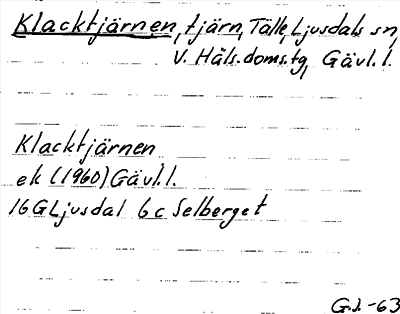 Klacktjärnen, tjärn, Tälle, Ljusdals sn,
V. Häls. doms. tg, Gävl. l.
Klacktjärnen
ek (1960) Gävl. l.
16G Ljusdal 6c Selberget
G.J. -63